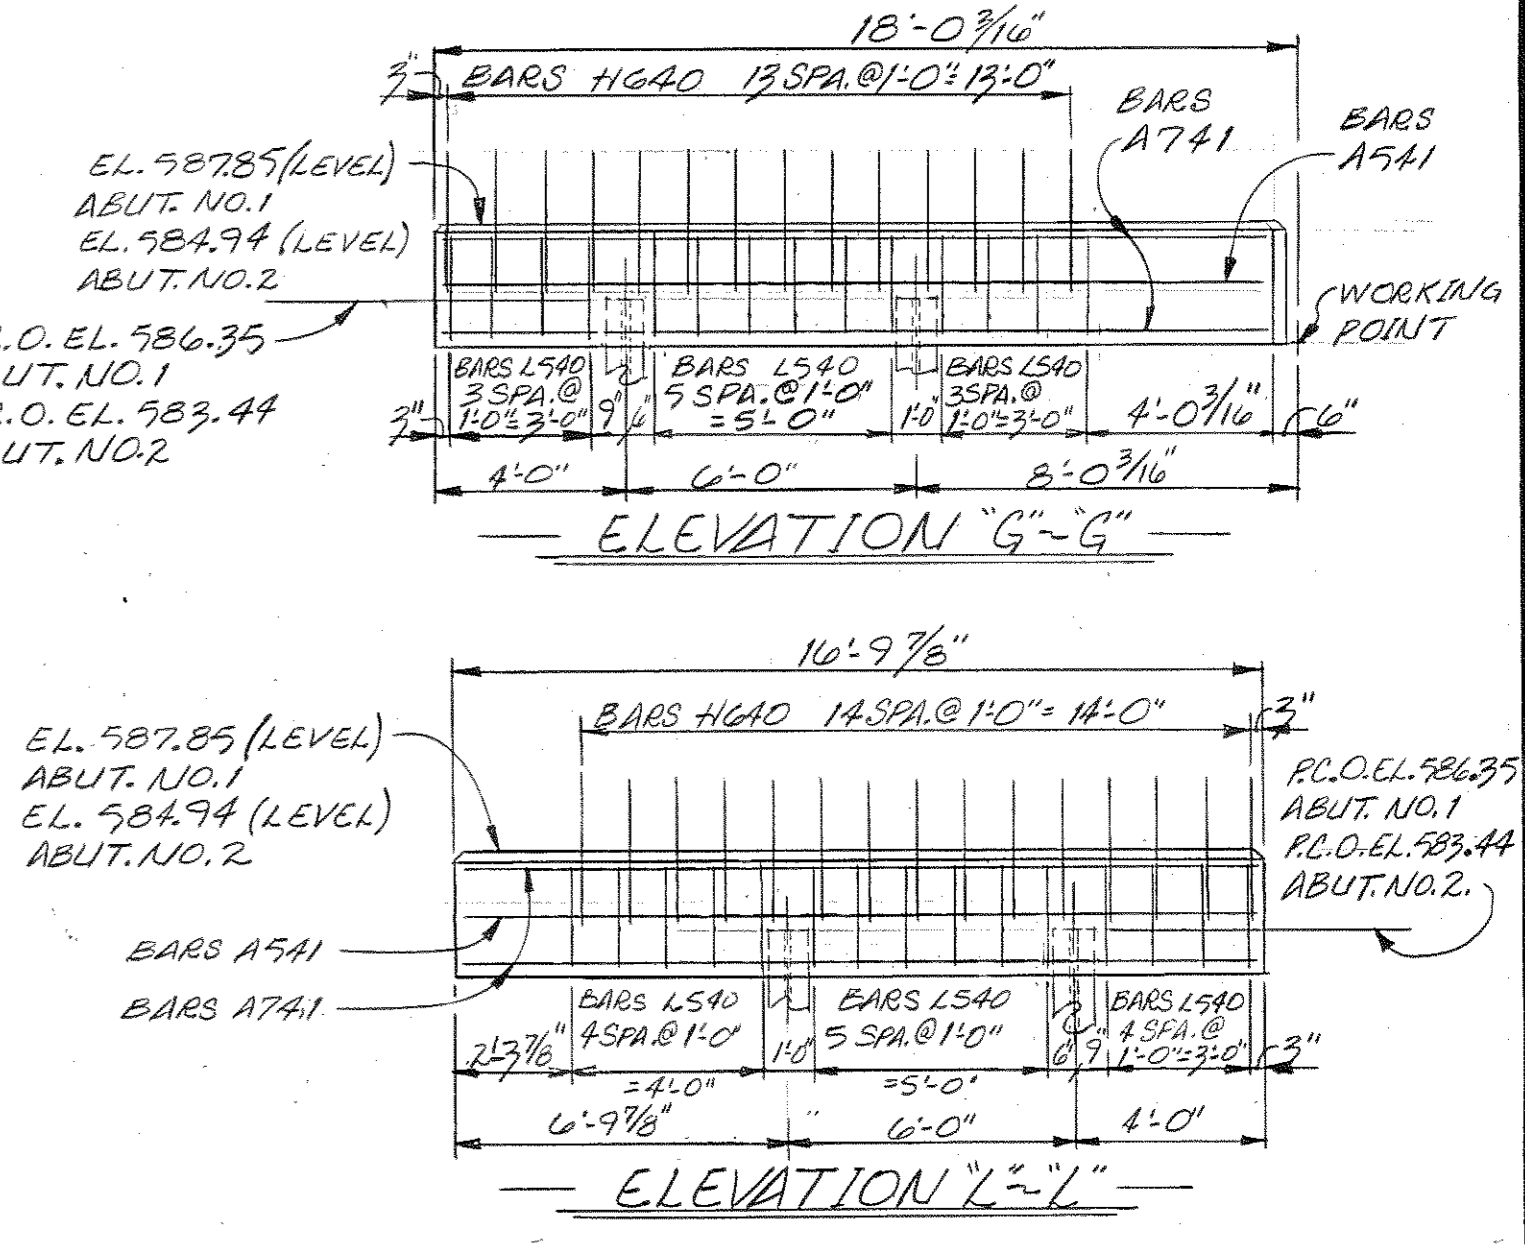 18'-0 3/16"
3"
BARS H640 13 SPA.@1'-0"=13'-0"
BARS
A741
BARS
A541
EL. 587.85 (LEVEL)
ABUT. NO.1
EL. 584.94 (LEVEL)
ABUT. NO.2
.O. EL. 586.35
UT. NO.1
.O. EL. 583.44
UT. NO.2
WORKING
POINT
BARS L540
3 SPA. @
1'-0"=3'-0"
BARS L540
5 SPA. @ 1'-0"
=5'-0"
BARS L540
3 SPA. @
1'-0"=3'-0"
3"
9"
6"
1'-0"
4'-0 3/16"
6"
4'-0"
6'-0"
8'-0 3/16"
ELEVATION "G"~"G"
16'-9 7/8"
BARS H640 14 SPA.@ 1'-0"= 14'-0"
3"
EL. 587.85 (LEVEL)
ABUT. NO.1
EL. 584.94 (LEVEL)
ABUT. NO.2
P.C.O. EL. 586.35
ABUT. NO.1
P.C.O. EL. 583.44
ABUT. NO.2.
BARS A541
BARS A741
BARS L540
4 SPA.@ 1'-0"
=4'-0"
BARS L540
5 SPA.@ 1'-0"
=5'-0"
BARS L540
4 SPA. @
1'-0"=3'-0"
2'-3 7/8"
1'-0"
6"
9"
3"
6'-9 7/8"
6'-0"
4'-0"
ELEVATION "L"~"L"